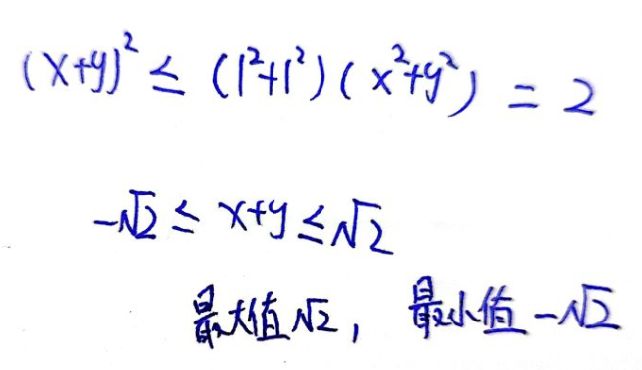 (x+y)² ≤ (1²+1²)(x²+y²) = 2
-√2 ≤ x+y ≤ √2
最大值√2, 最小值-√2